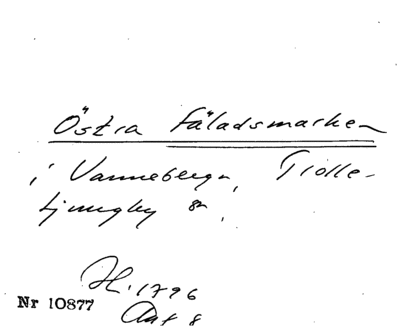 Östra Fäladsmarken
i Vanneberga, Trolle-
Ljungby sn.
H. 1796
Nr 10877
Akt 8